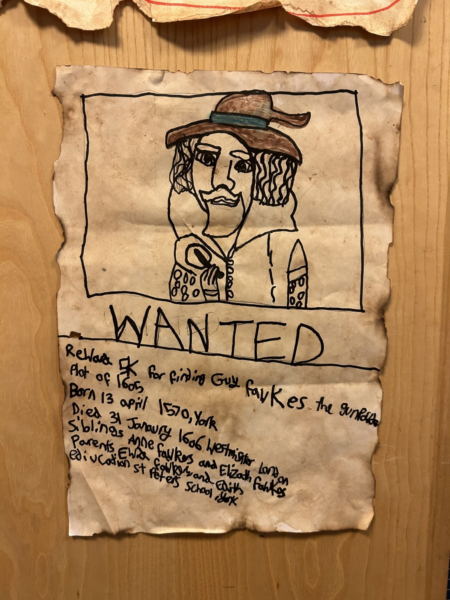 WANTED
Reward 5K for finding Guy fawkes the gunpowder
Plot of 1605
Born 13 april 1570, York
Died 31 Janaury 1606 Westmister London
Siblings Anne fawkes and Elizabth fawkes
Parents Edward fawkes and Edith
education st Peters School York